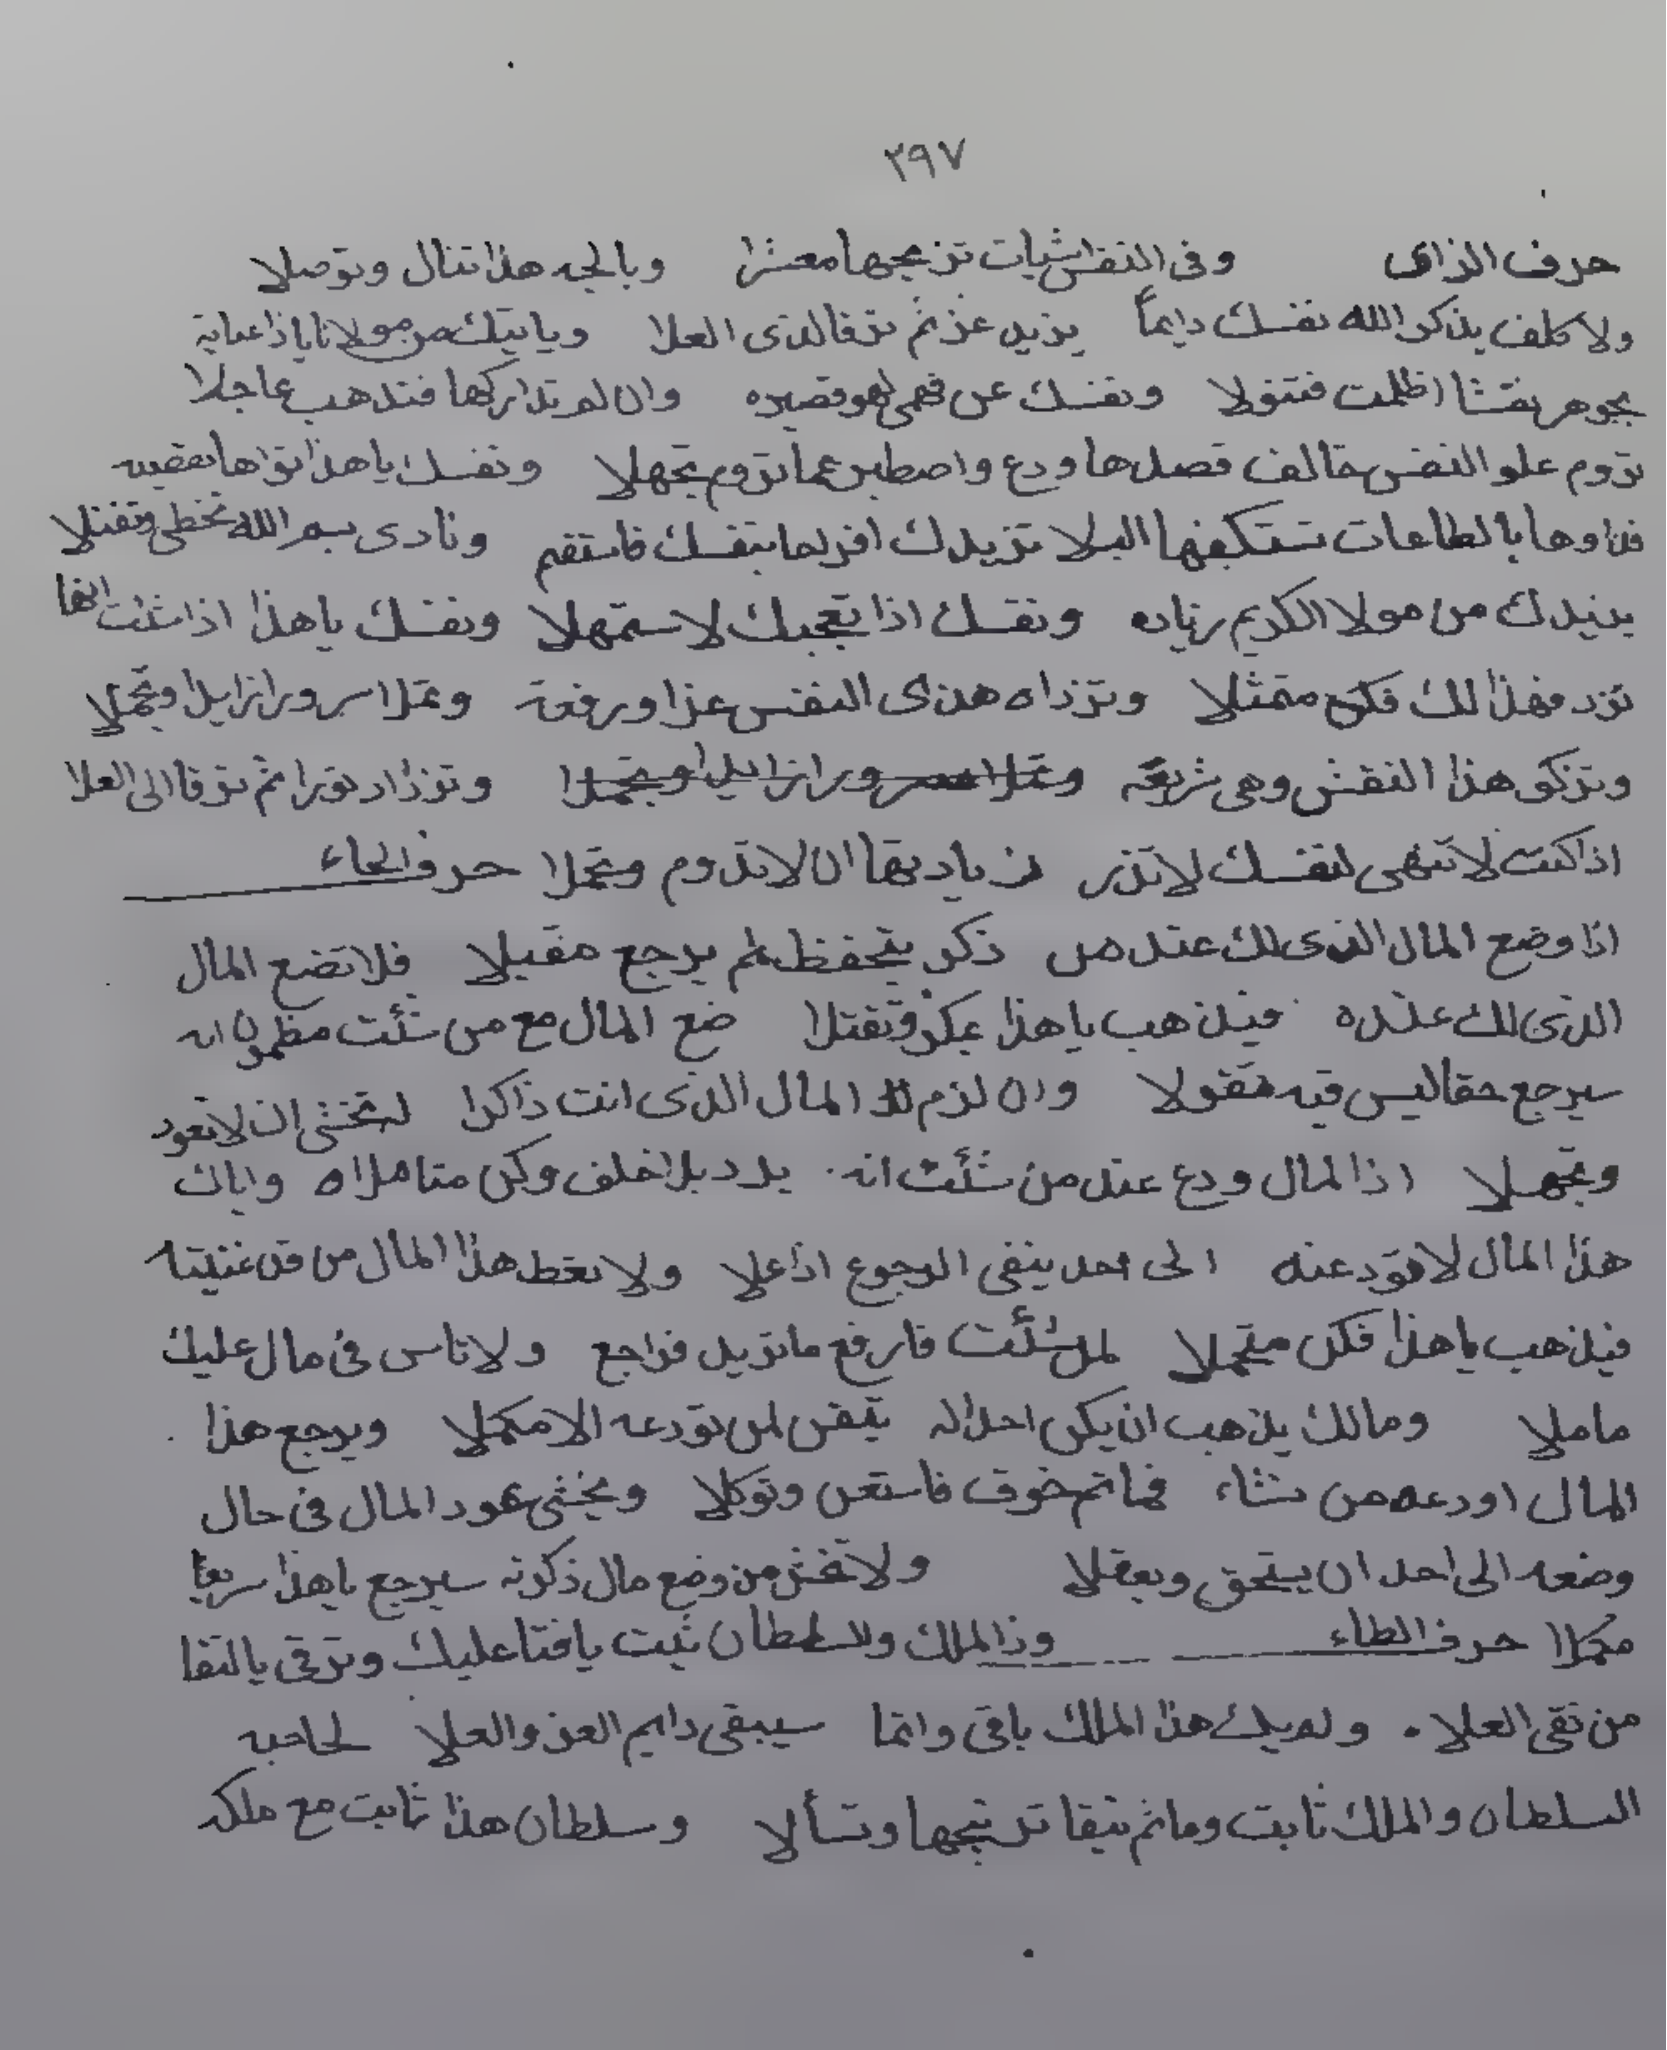 ٢٩٧
حرف الزاى وفى النفس ثبات تزعجها معشرا وبالجه هذا تنال وتوصلا
ولا كلف بذكر الله نفسك دايماً يزيد عز ثم ترقا لذى العلا وياتيك من مولانا يا ذا عناية
بجوهر نفسا اظلمت فتنولا ونفسك عن فهمى لهو قصيره وان لم تداركها فتذهب عاجلا
تروم علو النفس قالف فصلها ودع واصطبر عما تروم تجهلا ونفسك يا هذا تواها بعصيه
فداوها بالطاعات تستكفها البلا تزيدك افراحا بنفسك فاستقم ونادى بسم الله تحظى وتفتلا
يزيدك من مولا الكريم زياده ونفسك اذا تعجبك لا ستمهلا ونفسك يا هذا اذا شئت انها
تزد فهذا لك فكن متمثلا وتزداه هذى النفس عزا ورفعة وتملا سرورا زايدا وتجملا
وتزكو هذا النفس وهى شريفه وتزداد نورا ثم ترقا الى العلا
اذا كنت لا تنهى لنفسك لا تذر زيادتها ان لا تدوم وتجملا حرف الحاء
اذا وضع المال الذى لك عند من ذكر يتحفظ ثم يرجع مقبلا فلا تضع المال
الذى لك عنده فيذهب يا هذا بمكر وتفتلا ضع المال مع من شئت مظمون انه
سيرجع حقا ليس فيه تقولا وان لزم لك المال الذى انت ذاكرا لتخشى ان لا تعود
وتجهلا اذا المال ودع عند من شئت انه يرد بلا خلف وكن متاملا ه واياك
هذا المال لا تودعنه الى احد ينفى الرجوع اذا علا ولا تعط هذا المال من قد عنيته
فيذهب يا هذا فكن متجملا لمن شئت فارفع ما تريد فراجع ولا تاسى فى مال عليك
ماملا ومالك يذهب ان يكن احد له تيقن لمن تودعه الا مكملا ويرجع هذا
المال اودعه من تشاء فما ثم خوف فاستعن وتوكلا ويخشى عود المال فى حال
وضعه الى احد ان يستحق ويعقلا ولا تخش من وضع مال ذكرته سيرجع يا هذا سريعا
مكملا حرف الطاء وذا الملك والسلطان ثبت يا فتا عليك وترقى بالتقا
من تقى العلا ولم يك هذا الملك باقى وانما سيبقى دايم العز والعلا لصاحبه
السلطان والملك ثابت وما ثم تيقا ترتجها وتسألا وسلطان هذا ثابت مع ملكه